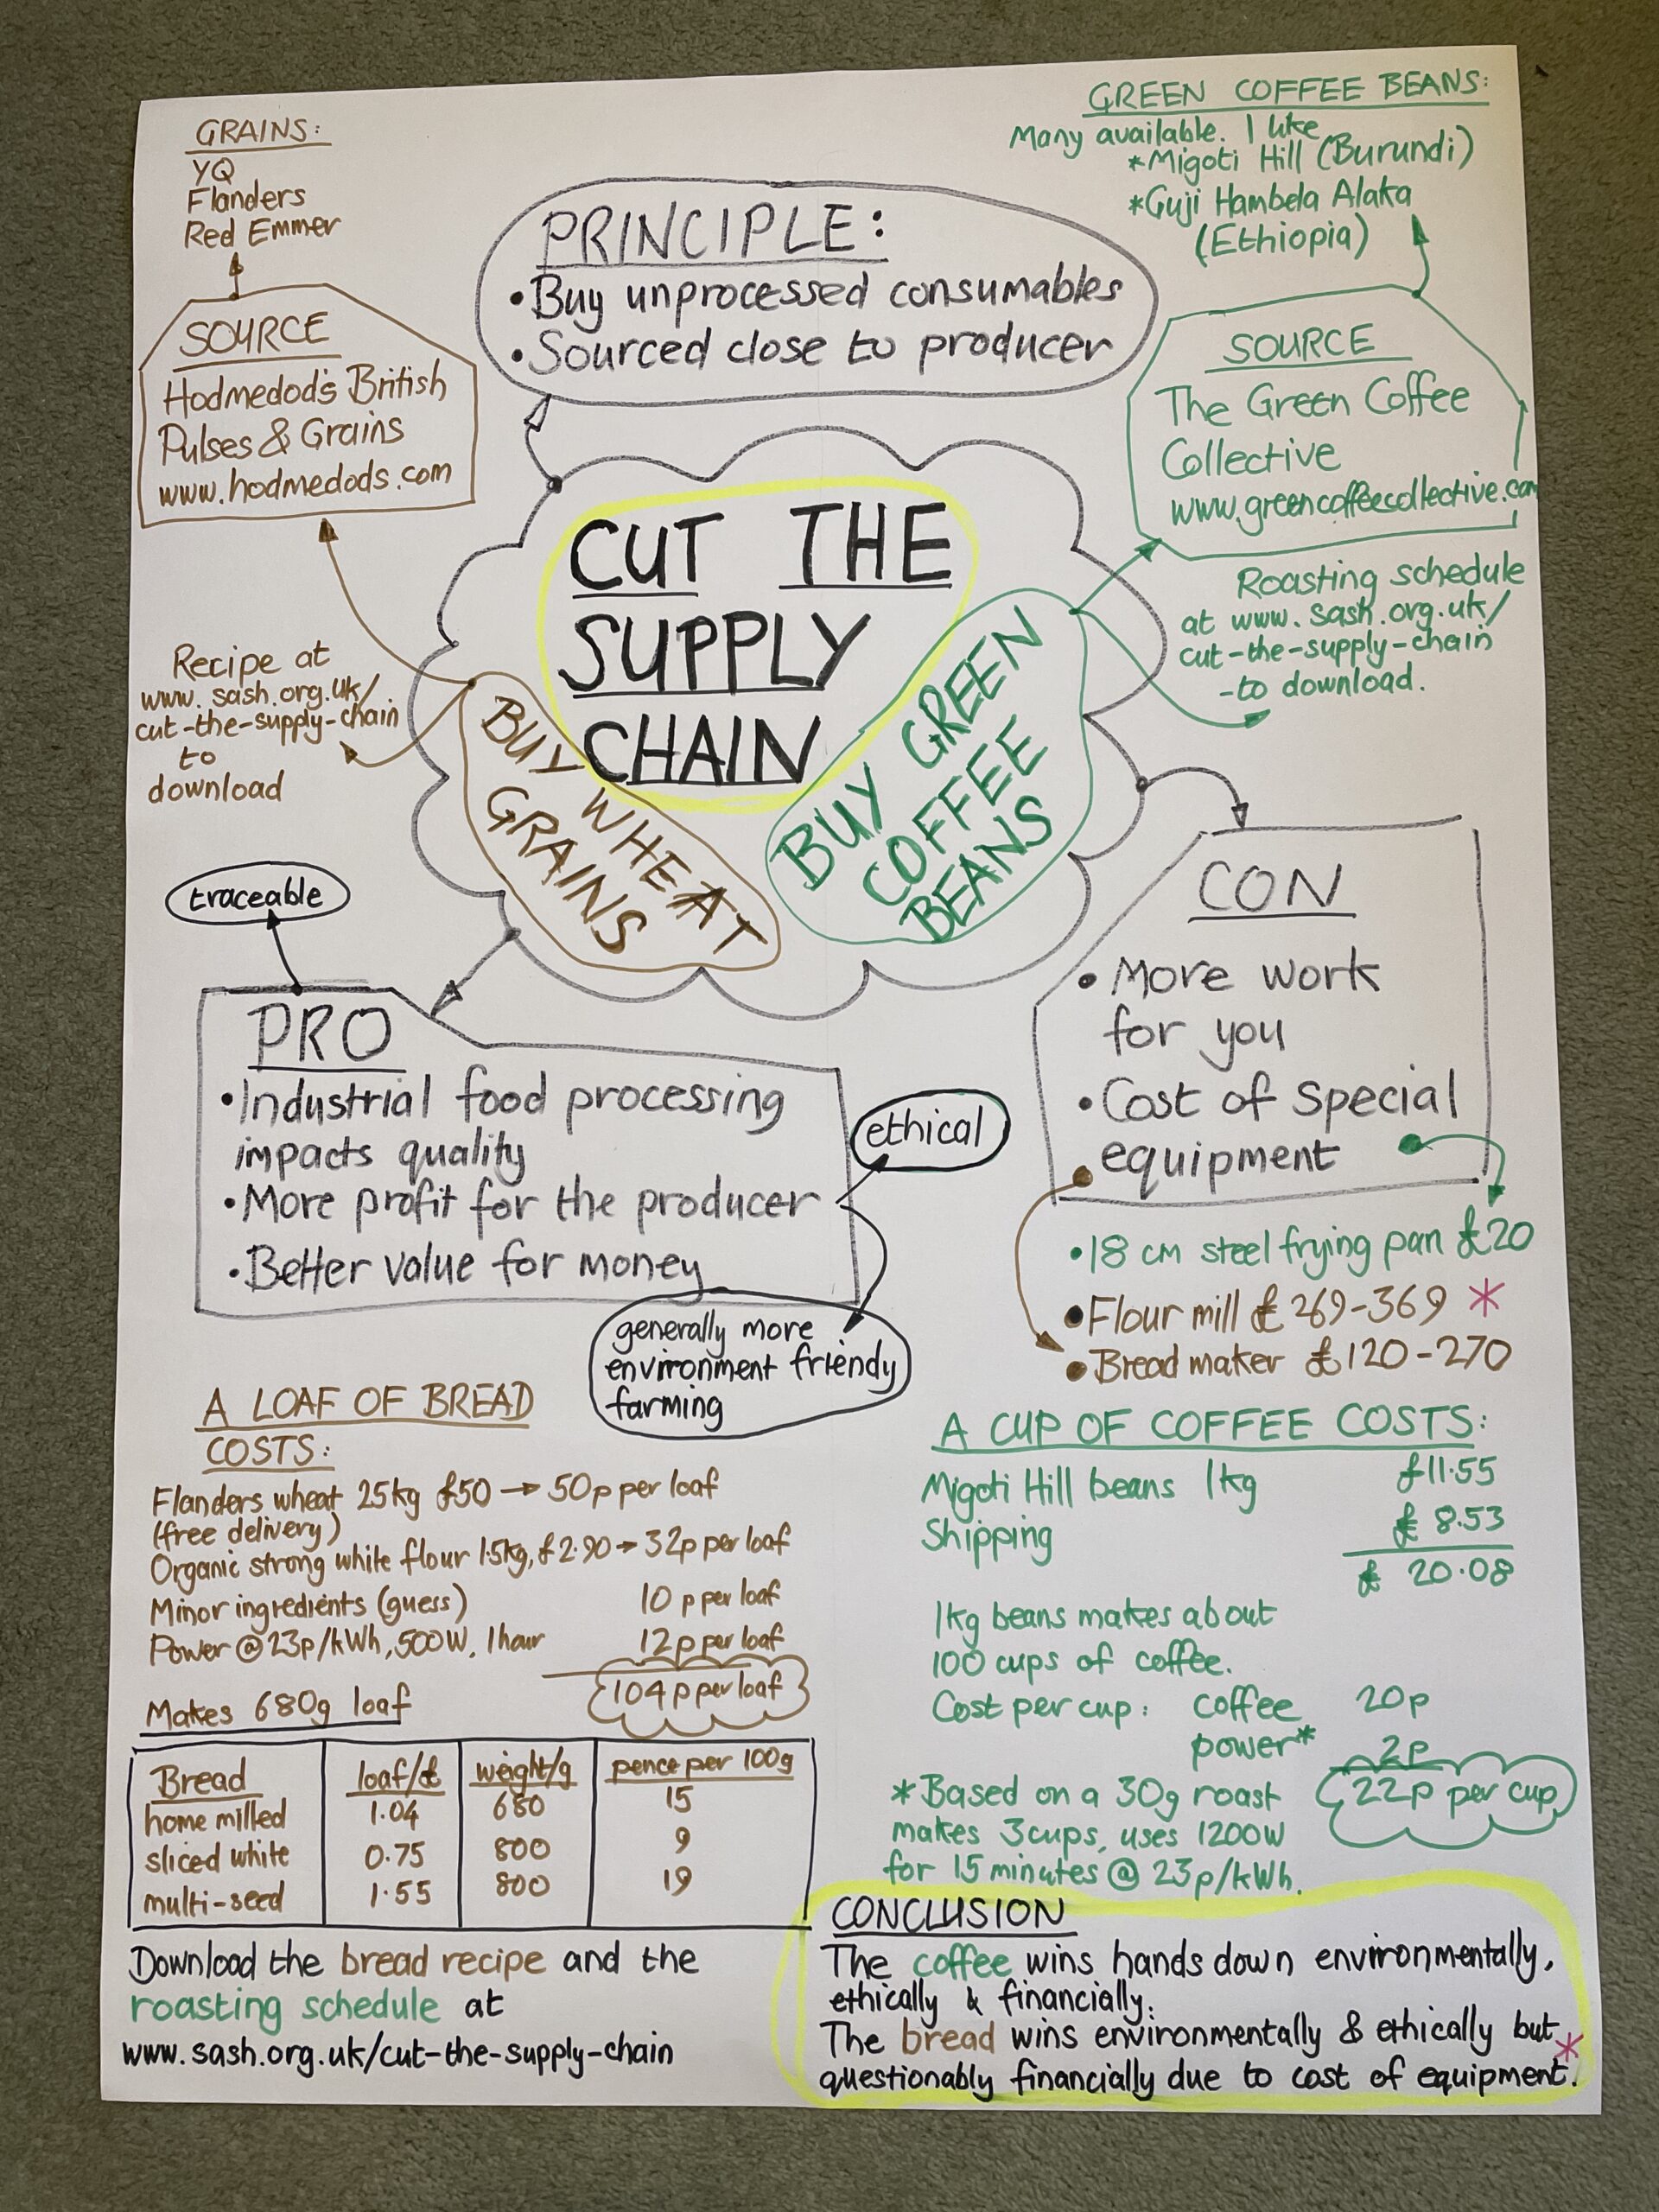 GRAINS:
YQ
Flanders
Red Emmer
GREEN COFFEE BEANS:
Many available. I like
*Migoti Hill (Burundi)
*Guji Hambela Alaka
(Ethiopia)
PRINCIPLE:
•Buy unprocessed consumables
•Sourced close to producer
SOURCE
Hodmedod's British
Pulses & Grains
www.hodmedods.com
SOURCE
The Green Coffee
Collective
www.greencoffeecollective.com
CUT THE
SUPPLY
CHAIN
Roasting schedule
at www.sash.org.uk/
cut-the-supply-chain
-to download.
Recipe at
www.sash.org.uk/
cut-the-supply-chain
to
download
BUY WHEAT
GRAINS
BUY GREEN
COFFEE
BEANS
traceable
PRO
•Industrial food processing
impacts quality
•More profit for the producer
•Better value for money
ethical
generally more
environment friendy
farming
CON
•More work
for you
•Cost of special
equipment
•18 cm steel frying pan £20
•Flour mill £269-369 *
•Bread maker £120-270
A LOAF OF BREAD
COSTS:
Flanders wheat 25kg £50 → 50p per loaf
(free delivery)
Organic strong white flour 1.5kg, £2.90 → 32p per loaf
Minor ingredients (guess) 10 p per loaf
Power @ 23p/kWh, 500W, 1hour 12p per loaf
104p per loaf
Makes 680g loaf
Bread loaf/£ weight/g pence per 100g
home milled 1.04 680 15
sliced white 0.75 800 9
multi-seed 1.55 800 19
Download the bread recipe and the
roasting schedule at
www.sash.org.uk/cut-the-supply-chain
A CUP OF COFFEE COSTS:
Migoti Hill beans 1kg £11.55
Shipping £8.53
£ 20.08
1kg beans makes about
100 cups of coffee.
Cost per cup: coffee 20p
power* 2p
22p per cup
*Based on a 30g roast
makes 3cups, uses 1200W
for 15 minutes @ 23p/kWh.
CONCLUSION
The coffee wins hands down environmentally,
ethically & financially.
The bread wins environmentally & ethically but
questionably financially due to cost of equipment.*